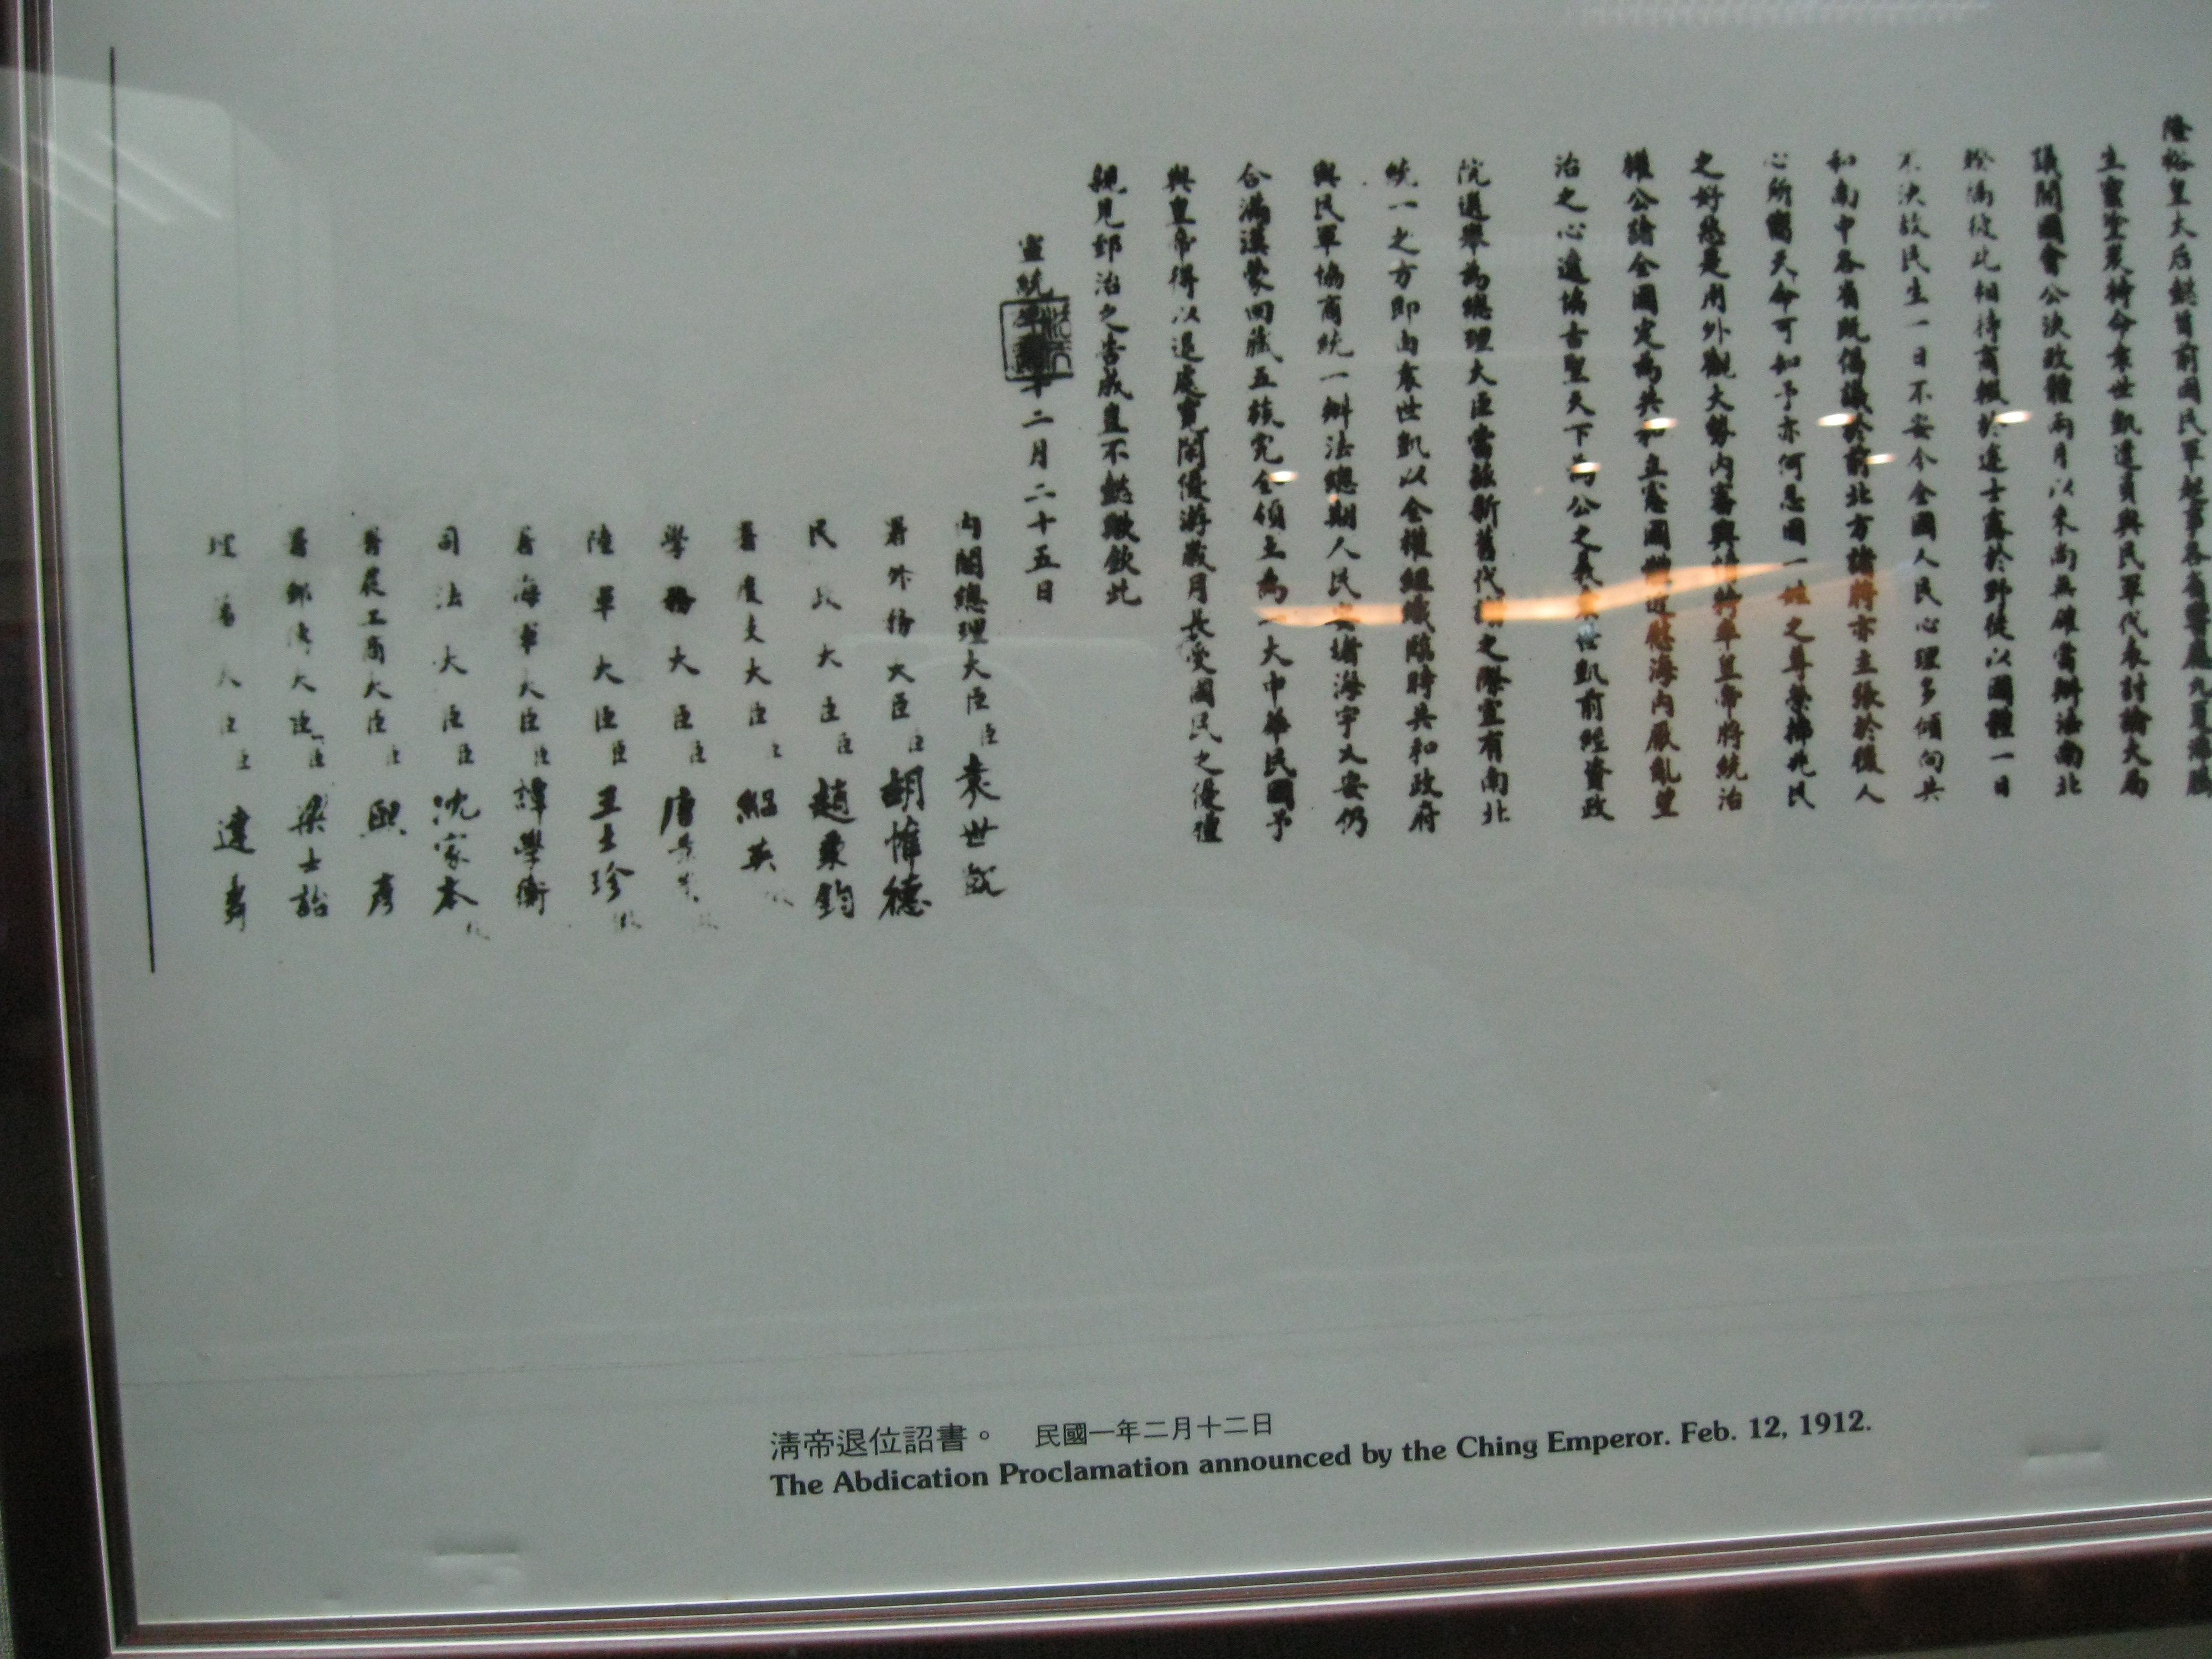 隆裕皇太后懿旨前因民軍起事各省響應九夏沸騰
生靈塗炭特命袁世凱遣員與民軍代表討論大局
議開國會公決政體兩月以來尚無確當辦法南北
暌隔彼此相持商輟於途士露於野徒以國體一日
不決故民生一日不安今全國人民心理多傾向共
和南中各省既倡議於前北方諸將亦主張於後人
心所嚮天命可知予亦何忍因一姓之尊榮拂兆民
之好惡是用外觀大勢內審輿情特率皇帝將統治
權公諸全國定為共和立憲國體近慰海內厭亂望
治之心遠協古聖天下為公之義袁世凱前經資政
院選舉為總理大臣當茲新舊代謝之際宜有南北
統一之方即由袁世凱以全權組織臨時共和政府
與民軍協商統一辦法總期人民安堵海宇乂安仍
合滿漢蒙回藏五族完全領土為一大中華民國予
與皇帝得以退處寬閒優游歲月長受國民之優禮
親見郅治之告成豈不懿歟欽此
宣統三年十二月二十五日
內閣總理大臣臣袁世凱
署外務大臣臣胡惟德
民政大臣臣趙秉鈞
署度支大臣臣紹英
學務大臣臣唐景崇
陸軍大臣臣王士珍
署海軍大臣臣譚學衡
司法大臣臣沈家本
署農工商大臣臣熙彥
署郵傳大臣臣梁士詒
理藩大臣臣達壽
清帝退位詔書。 民國一年二月十二日
The Abdication Proclamation announced by the Ching Emperor. Feb. 12, 1912.